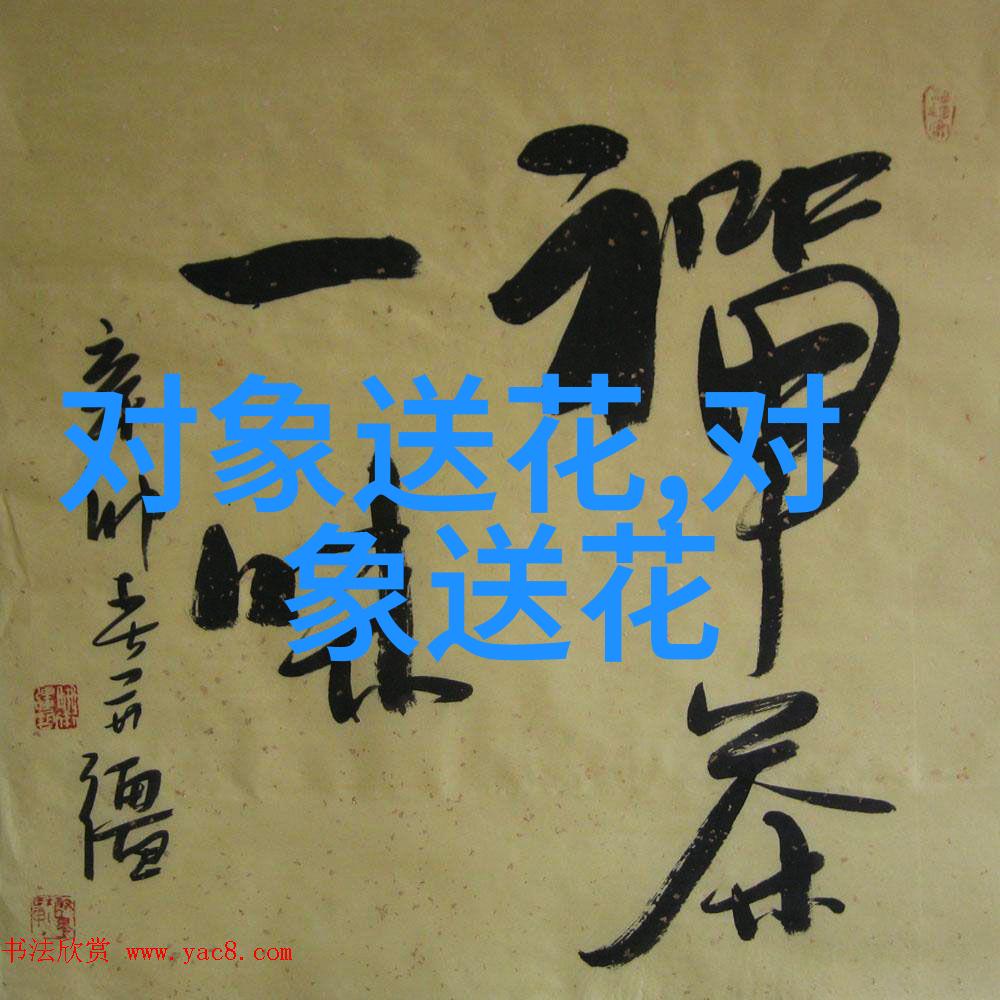 禪茶
一味
对象送花,对
象送花
书法欣赏 www.yac8.com